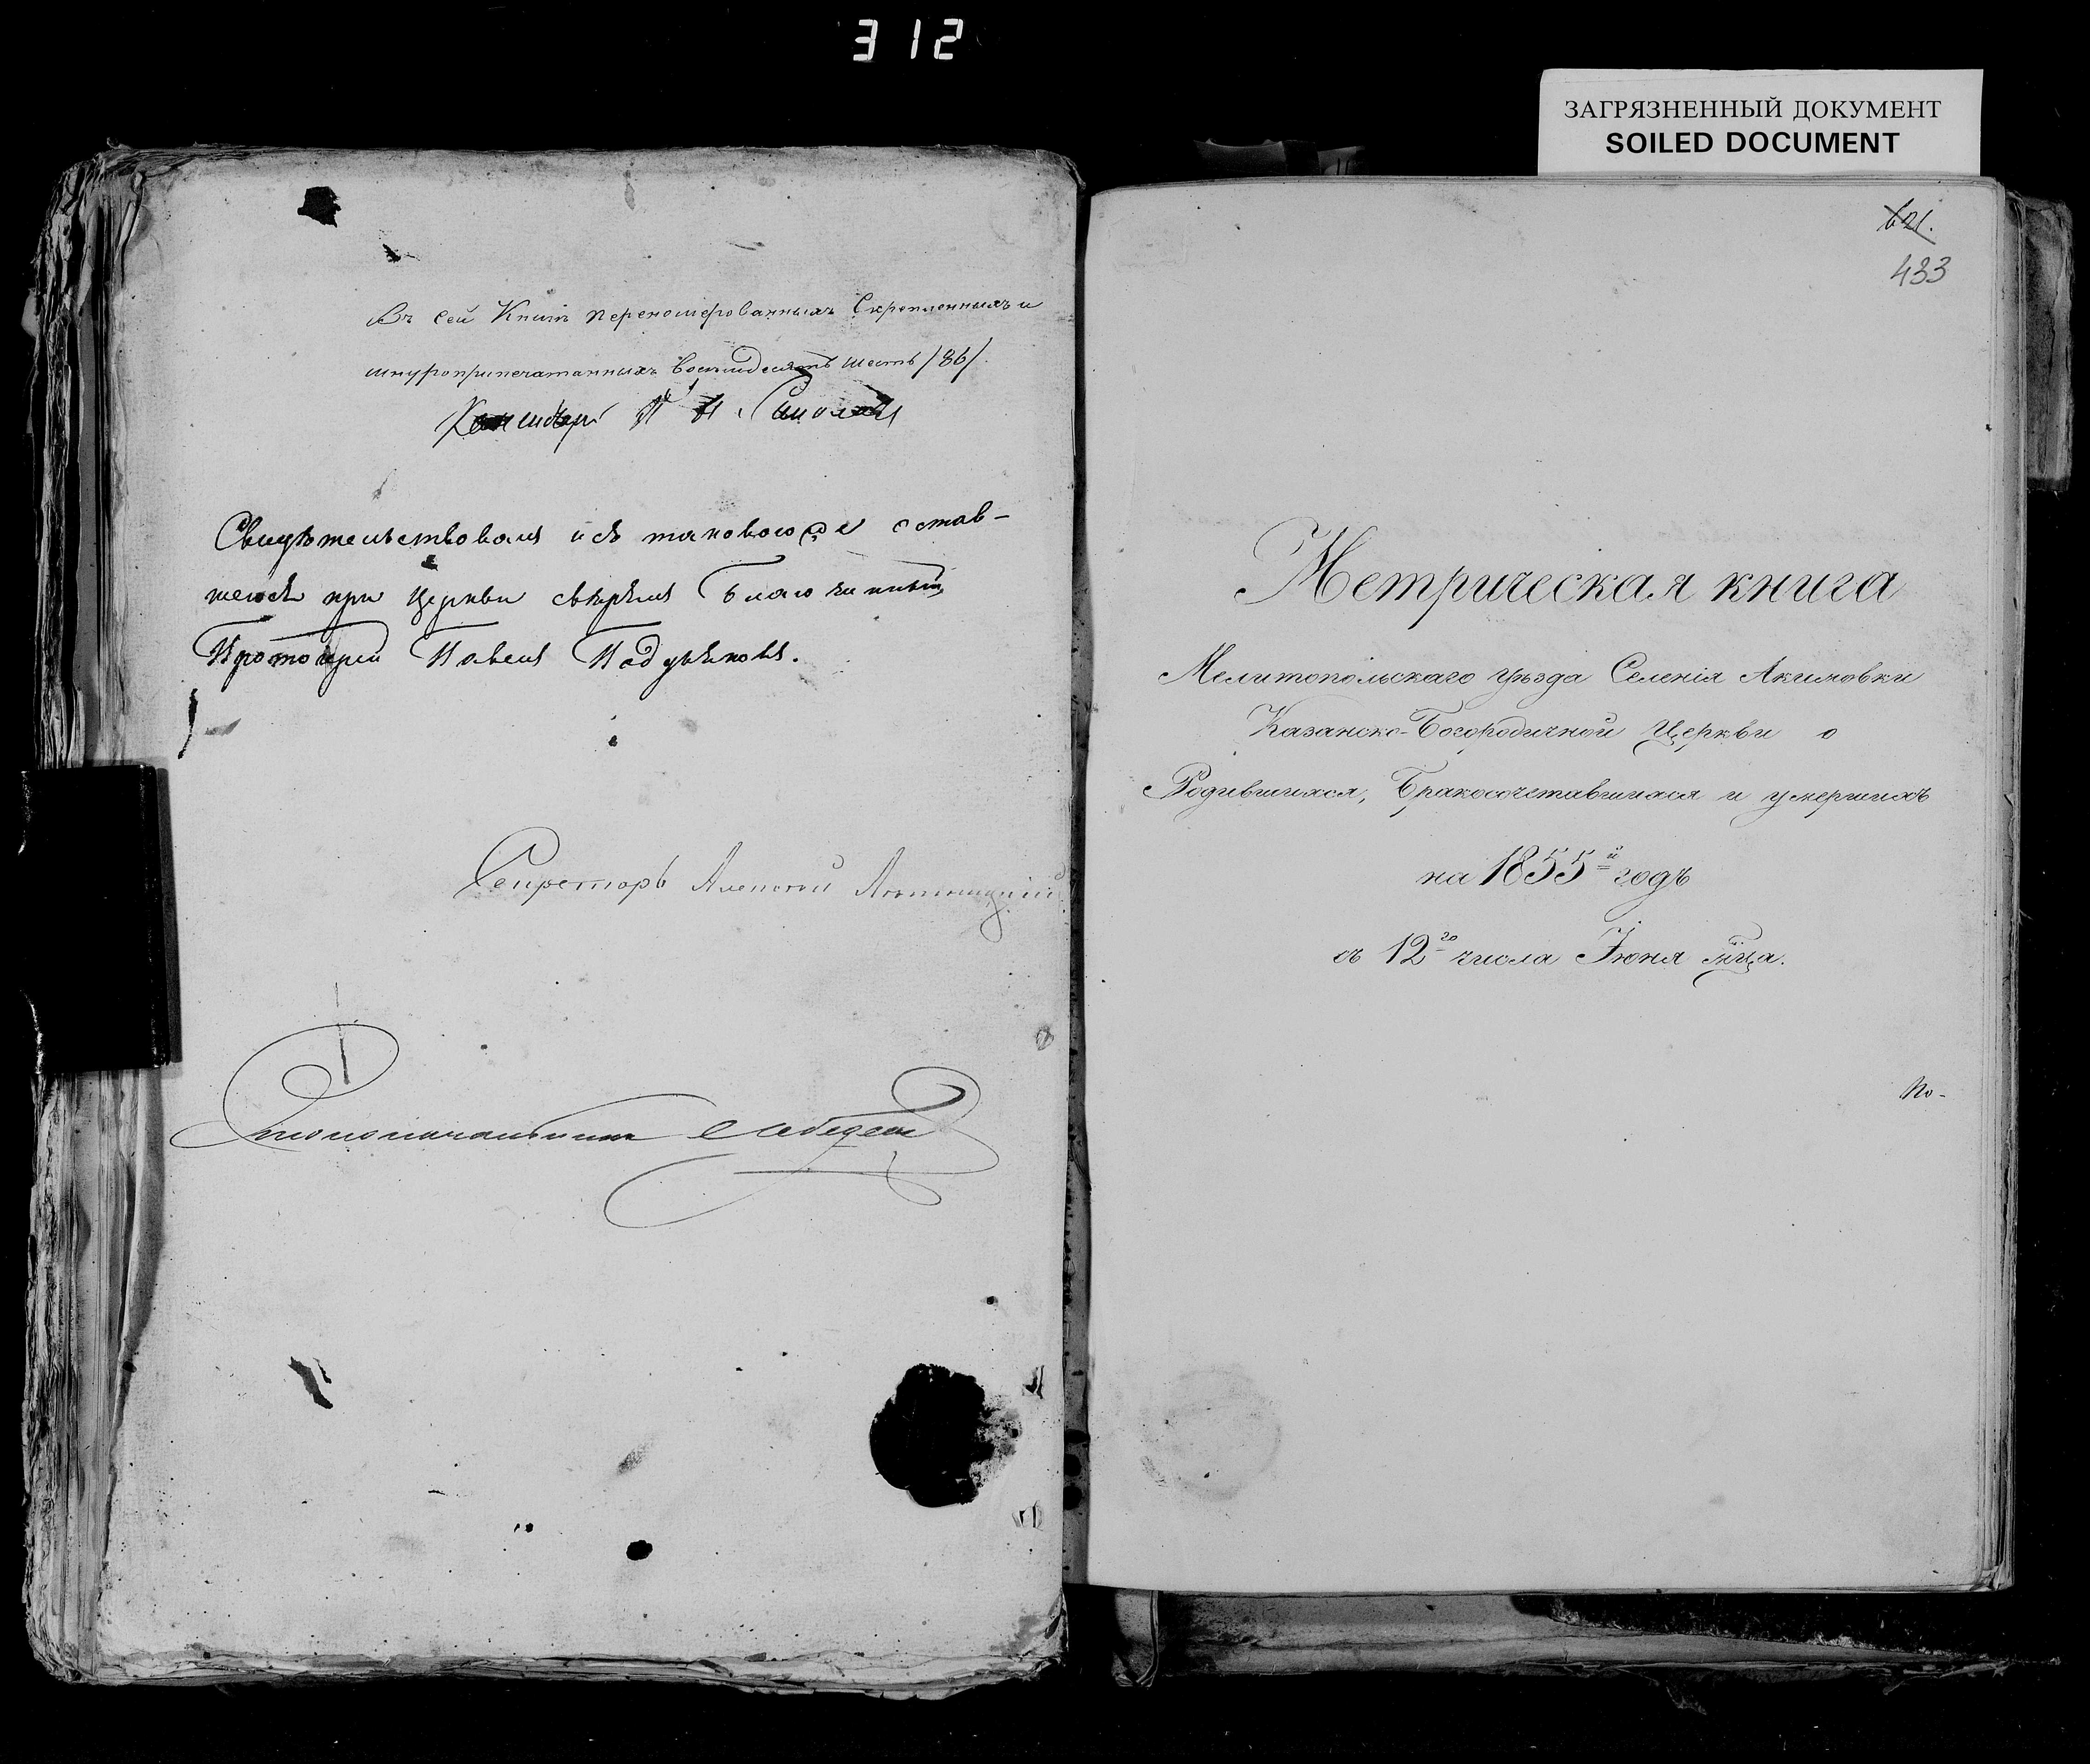 312
ЗАГРЯЗНЕННЫЙ ДОКУМЕНТ
SOILED DOCUMENT
Въ сей Книгѣ перенамерованныхъ Скрепленныхъ и
шнуроприпечатанныхъ восемдесятъ шесть /86/.
Свидѣтельствовалъ и съ таковою же остав-
шеюся при церкви свѣрялъ Благочинный
Протоіерей Павелъ
Секретарь Алексей
Столоначальникъ Лебедевъ
621.
433
Метрическая книга
Мелитопольскаго уѣзда Селенія Акимовки
Казанско-Богородичной Церкви о
Родившихся, Бракосочетавшихся и умершихъ
на 1855й годъ
съ 12го числа Іюня мца.
По-